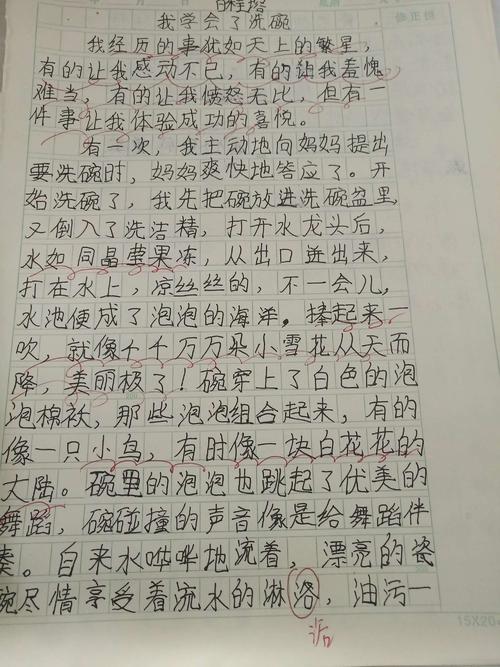 我学会了洗碗
我经历的事犹如天上的繁星，
有的让我感动不已，有的让我羞愧
难当，有的让我愤怒无比，但有一
件事让我体验成功的喜悦。
有一次，我主动地向妈妈提出
要洗碗时，妈妈爽快地答应了。开
始洗碗了，我先把碗放进洗碗盆里，
又倒入了洗洁精，打开水龙头后，
水如同晶莹果冻，从出口迸出来，
打在水上，凉丝丝的，不一会儿，
水池便成了泡泡的海洋。捧起来一
吹，就像千千万万朵小雪花从天而
降，美丽极了！碗穿上了白色的泡
泡棉袄，那些泡泡组合起来，有的
像一只小鸟，有时像一块白花花的
大陆。碗里的泡泡也跳起了优美的
舞蹈，碗碰撞的声音像是给舞蹈伴
奏。自来水哗哗地流着，漂亮的瓷
碗尽情享受着流水的淋浴，油污一
15X20